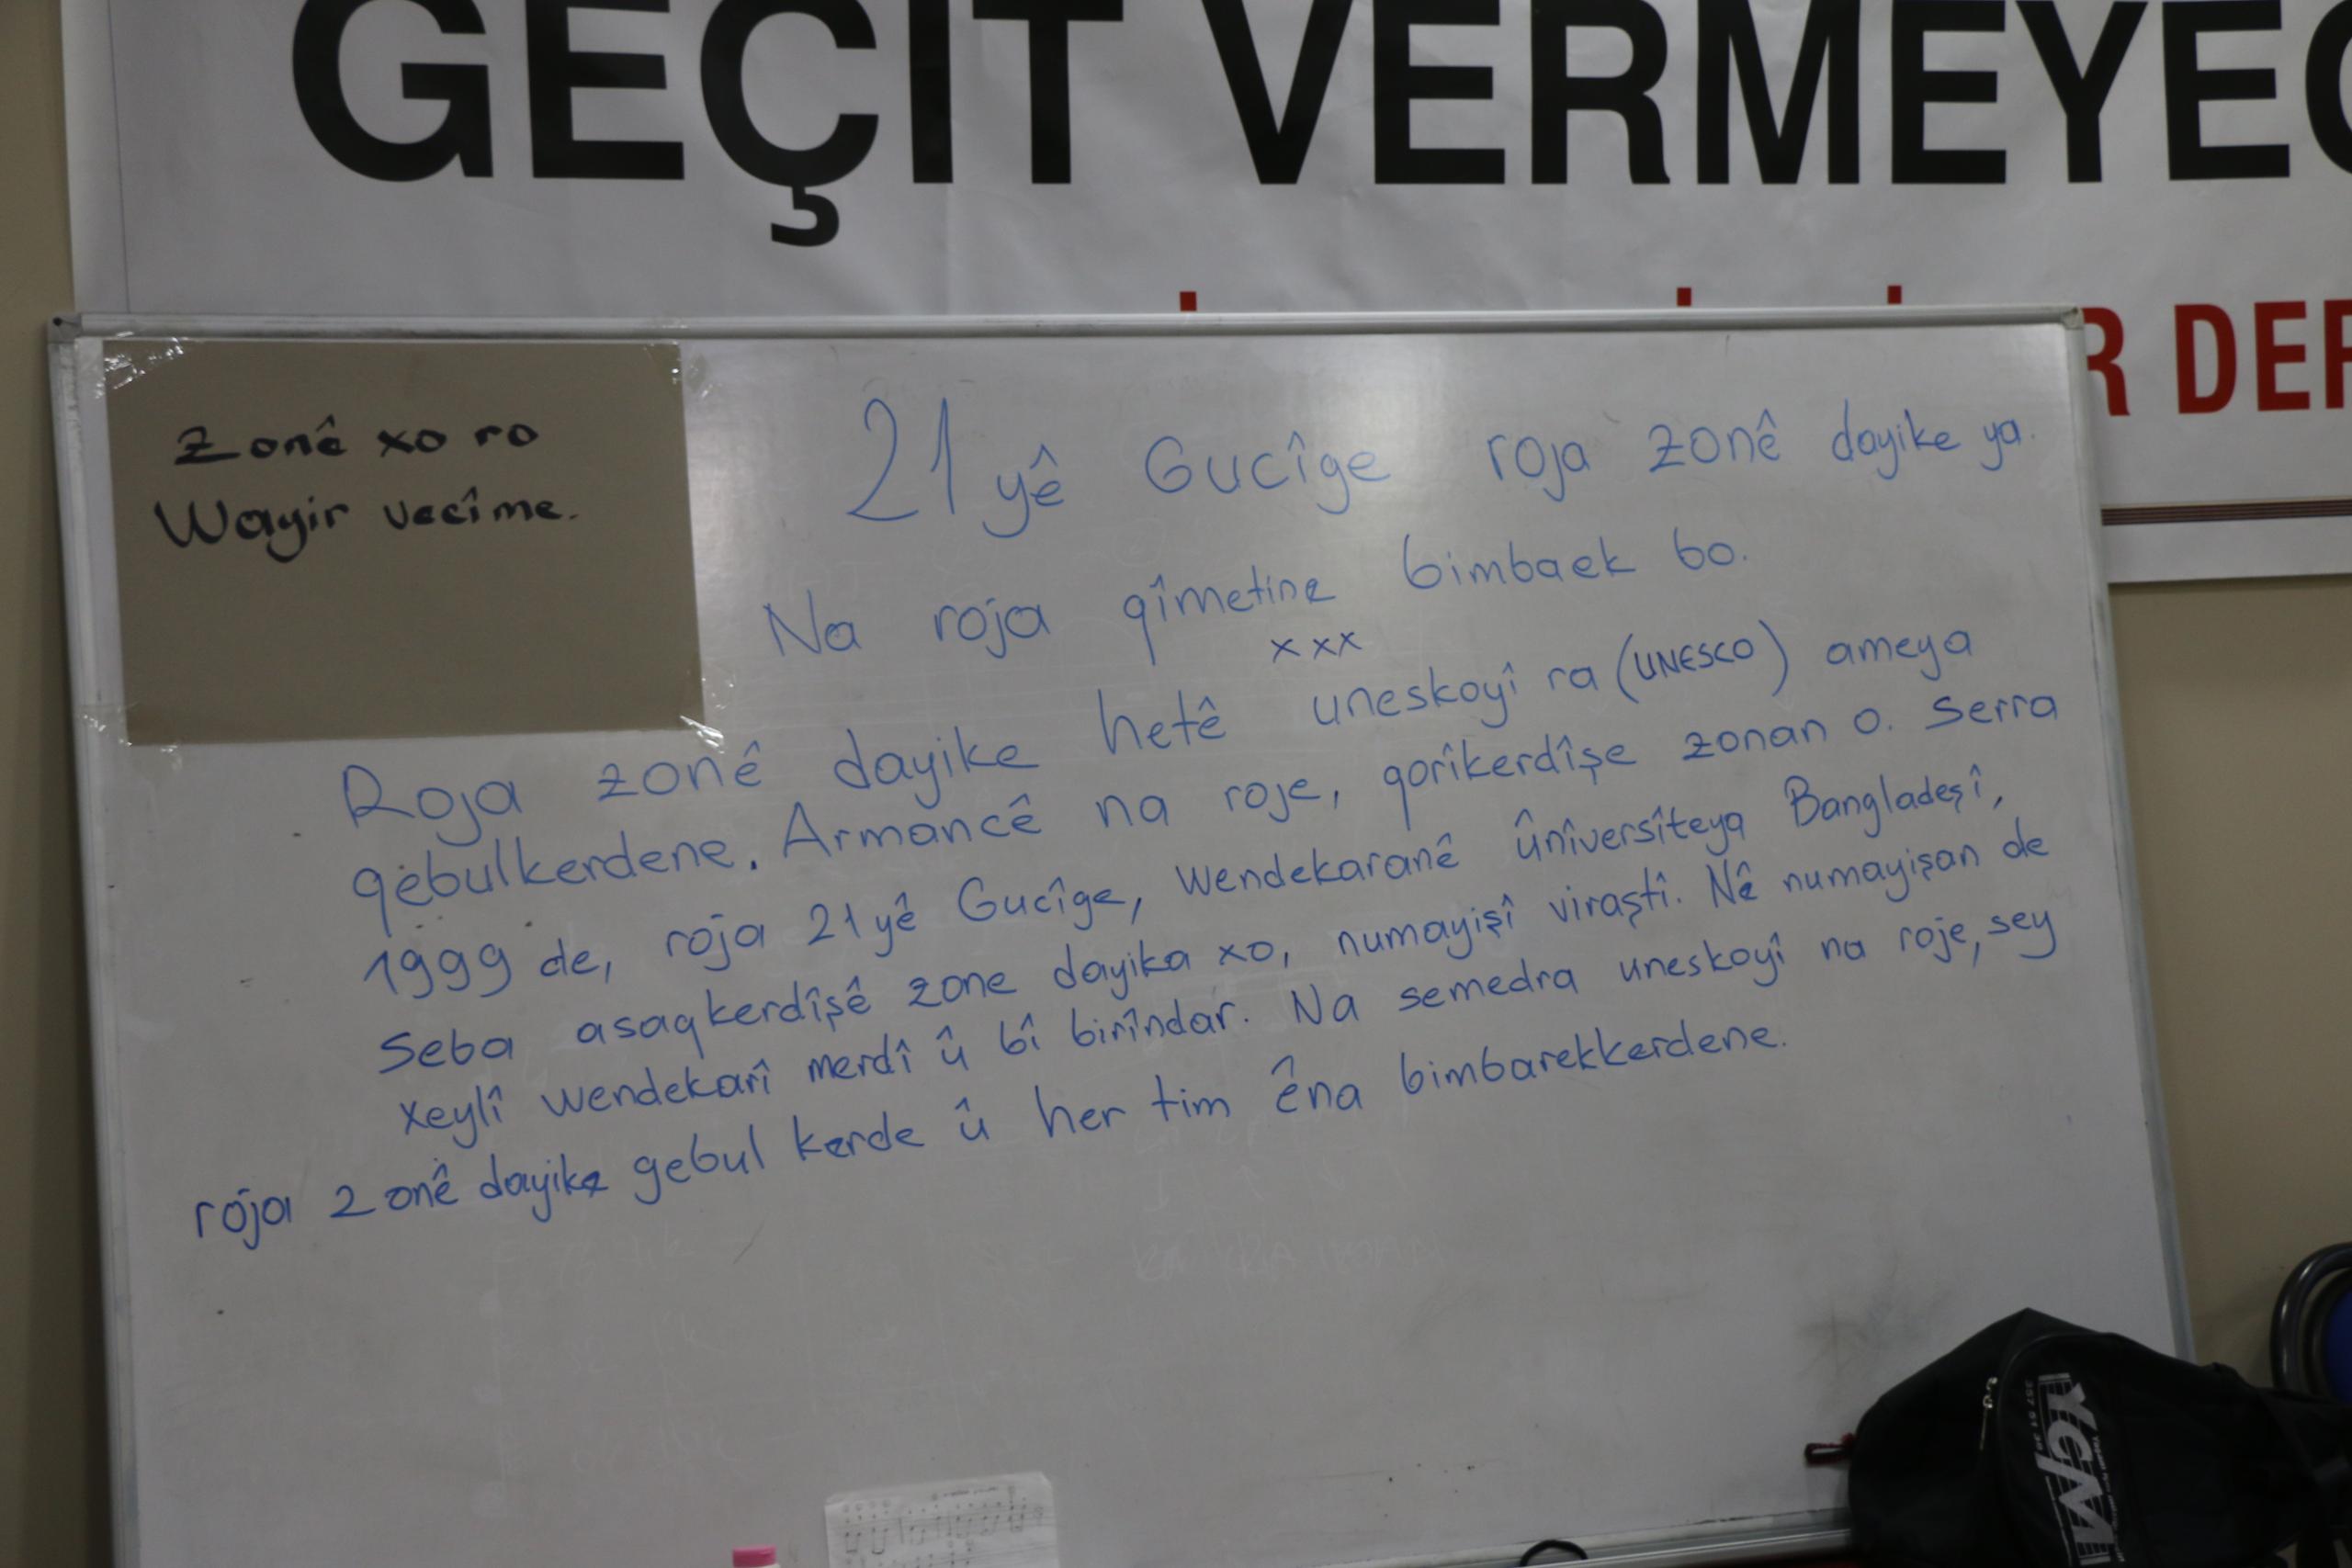 GEÇİT VERMEYEC
R DER
Zonê xo ro
Wayir vecîme.
21 yê Gucîge roja zonê dayike ya.
Na roja qîmetine bimbaek bo.
xxx
Roja zonê dayike hetê uneskoyî ra (UNESCO) ameya
qebulkerdene. Armancê na roje, qorîkerdîşe zonan o. Serra
1999 de, roja 21 yê Gucîge, wendekaranê ûnîversîteya Bangladeşî,
Seba asaqkerdîşê zone dayika xo, numayişî viraştî. Nê numayişan de
xeylî wendekarî merdî û bî birîndar. Na semedra uneskoyî na roje, sey
roja zonê dayike gebul kerde û her tim êna bimbarekkerdene.
YCM